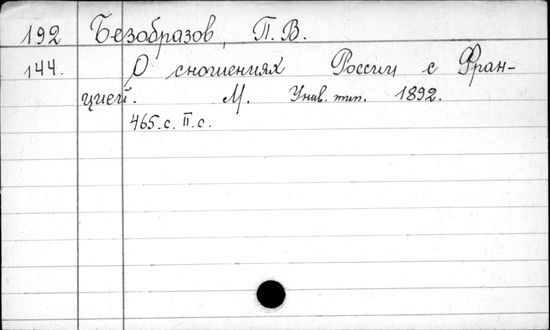 192 Безобразов, П. В.
144. О сношениях России с Фран-
цией. М. Унив. тип. 1892.
465.с. II.с.